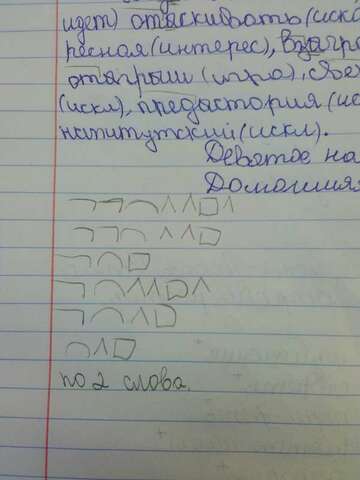 идет) отыскивать (иска
ресная (интерес), взыгра
отыгрыш (игра), сверх
(искл), предыстория (ис
(искл).
Девятое на
Домашняя
по 2 слова.